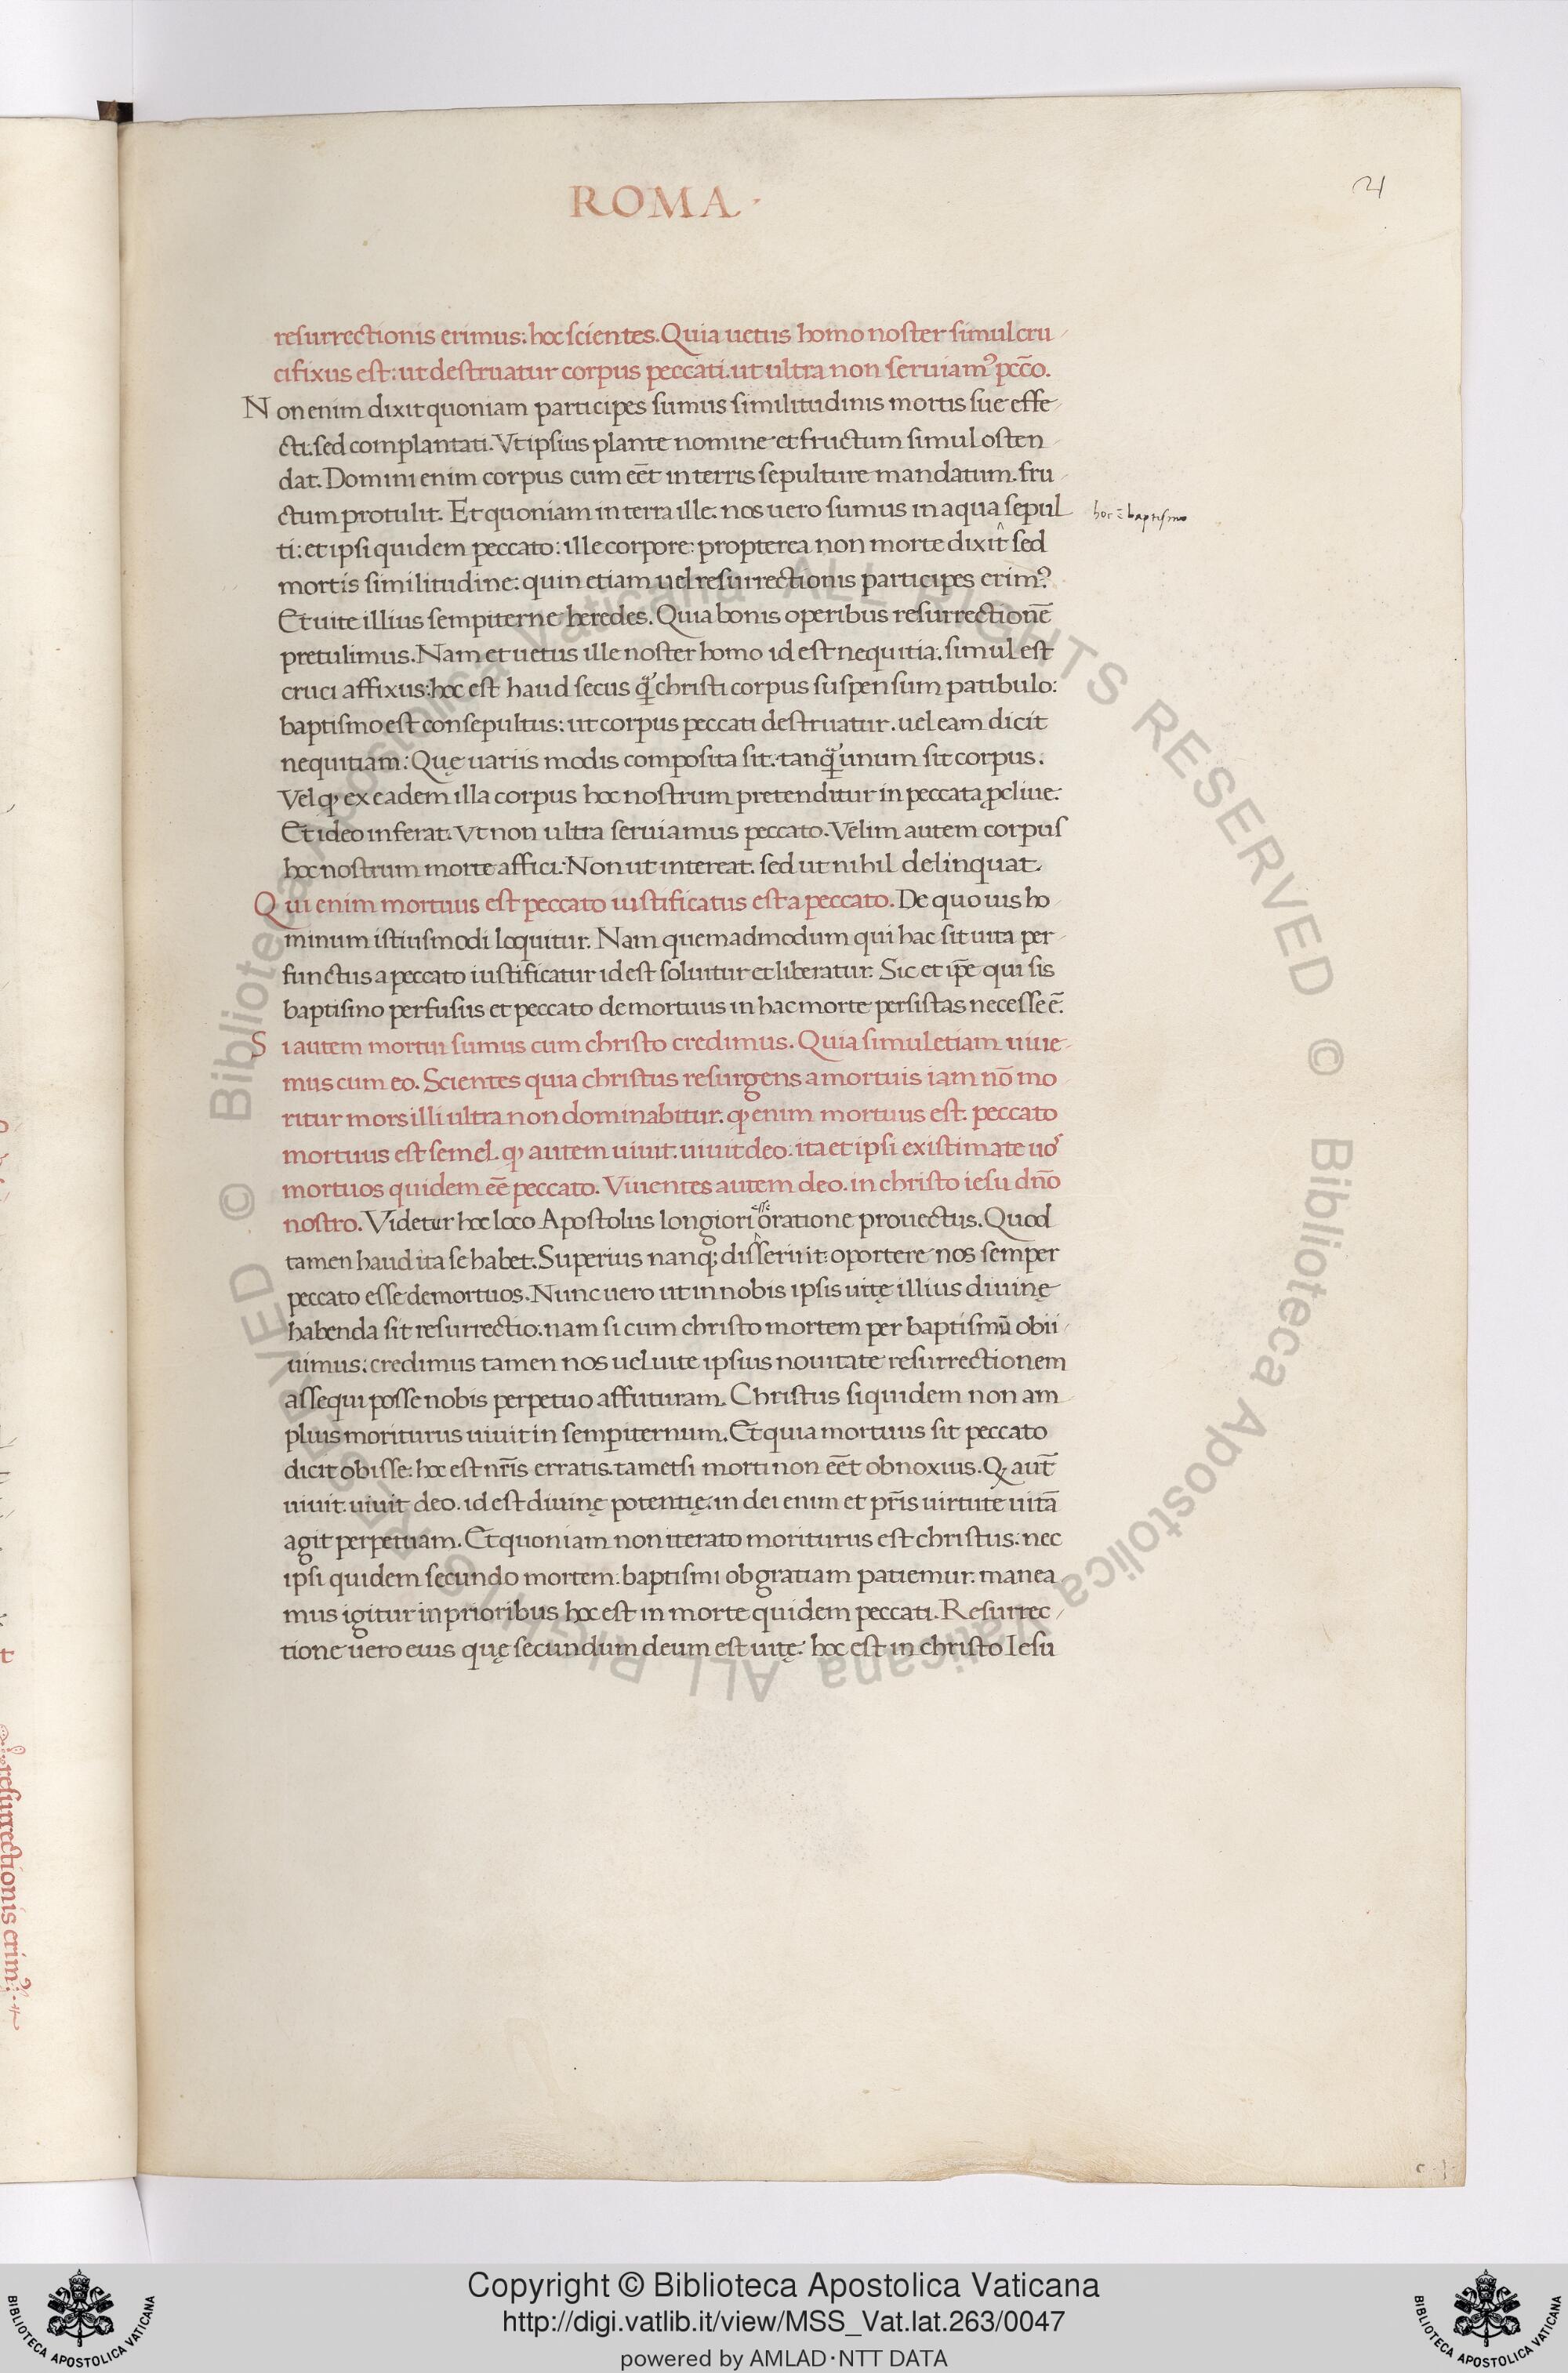 ROMA.
21
resurrectionis erimus: hoc scientes. Quia uetus homo noster simul cru
cifixus est: ut destruatur corpus peccati. ut ultra non seruiamꝰ pcc̄o.
Non enim dixit quoniam participes sumus similitudinis mortis sue effe
cti: sed complantati. Vt ipsius plante nomine et fructum simul osten
dat. Domini enim corpus cum eēt in terris sepulture mandatum. fru
ctum protulit. Et quoniam in terra ille: nos uero sumus in aqua sepul
hoc ē baptismo
ti: et ipsi quidem peccato: ille corpore: propterea non morte dixit sed
mortis similitudine: quin etiam uel resurrectionis participes erimꝰ.
Et uite illius sempiterne heredes. Quia bonis operibus resurrectionē
pretulimus. Nam et uetus ille noster homo id est nequitia. simul est
cruci affixus: hoc est haud secus qͣ̃ christi corpus suspensum patibulo:
baptismo est consepultus: ut corpus peccati destruatur. uel eam dicit
nequitiam: Quę uariis modis composita sit. tanqͣ̃ unum sit corpus.
Vel ꝙ ex eadem illa corpus hoc nostrum pretenditur in peccata ꝓcliue.
Et ideo inferat. Vt non ultra seruiamus peccato. Velim autem corpus
hoc nostrum morte affici: Non ut intereat. sed ut nihil delinquat.
Qui enim mortuus est peccato iustificatus est a peccato. De quo uis ho
minum istiusmodi loquitur. Nam quemadmodum qui hac sit uita per
functus a peccato iustificatur id est soluitur et liberatur. Sic et ip̄e qui sis
baptismo perfusus et peccato demortuus in hac morte persistas necesse ē.
Si autem mortui sumus cum christo credimus. Quia simul etiam uiue
mus cum eo. Scientes quia christus resurgens a mortuis iam nō mo
ritur mors illi ultra non dominabitur. ꝙ enim mortuus est. peccato
mortuus est semel. ꝙ autem uiuit. uiuit deo. ita et ipsi existimate uos
mortuos quidem eē peccato. Viuentes autem deo. in christo iesu dn̄o
nostro. Videtur hoc loco Apostolus longiori oratione prouectus. Quod
esse
tamen haud ita se habet. Superius nanq; disseruit: oportere nos semper
peccato esse demortuos. Nunc uero ut in nobis ipsis uitę illius diuinę
habenda sit resurrectio: nam si cum christo mortem per baptismū obii
uimus: credimus tamen nos uel uite ipsius nouitate resurrectionem
assequi posse nobis perpetuo affuturam. Christus siquidem non am
plius moriturus uiuit in sempiternum. Et quia mortuus sit peccato
dicit obisse: hoc est nr̄is erratis. tametsi morti non eēt obnoxius. Ꝙ aut̄
uiuit. uiuit deo. id est diuinę potentię: in dei enim et pr̄is uirtute uitā
agit perpetuam. Et quoniam non iterato moriturus est christus. nec
ipsi quidem secundo mortem. baptismi ob gratiam patiemur. manea
mus igitur in prioribus hoc est in morte quidem peccati. Resurrec
tione uero eius quę secundum deum est uitę. hoc est in christo Iesu
resurrectionis erimꝰ:
Biblioteca Apostolica Vaticana ALL RIGHTS RESERVED ©
Biblioteca Apostolica Vaticana ALL RIGHTS RESERVED ©
Copyright © Biblioteca Apostolica Vaticana
http://digi.vatlib.it/view/MSS_Vat.lat.263/0047
powered by AMLAD·NTT DATA
BIBLIOTECA APOSTOLICA VATICANA
BIBLIOTECA APOSTOLICA VATICANA